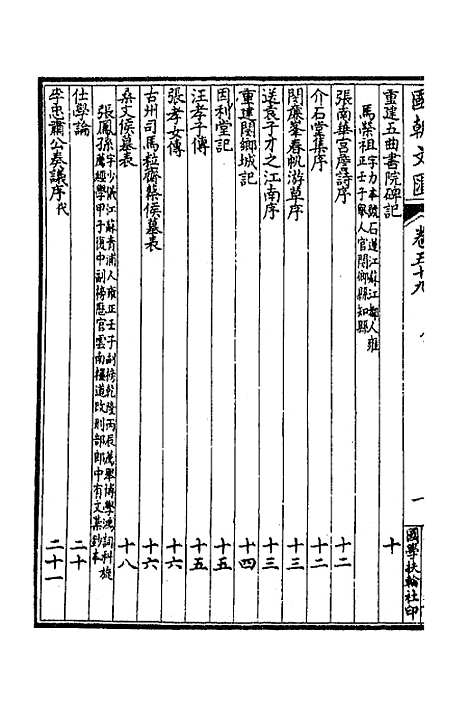 國朝文匯 卷五十九 一 國學扶輪社印
重建五曲書院碑記 十
馬榮祖字力本號石蓮江蘇江都人雍
正壬子舉人官閿鄉縣知縣
張南華宮詹詩序 十二
介石堂集序 十二
閔廉峯春帆游草序 十三
送袁子才之江南序 十三
重建閿鄉城記 十四
因利堂記 十五
汪孝子傳 十五
張孝女傳 十六
古州司馬粒齋蔡侯墓表 十六
桑文侯墓表 十八
張鳳孫字少儀江蘇青浦人雍正壬子副榜乾隆丙辰薦舉博學鴻詞科旋
薦經學甲子復中副榜歷官雲南糧道改刑部郎中有文集鈔本
仕學論 二十
李忠肅公奏議序代 二十一